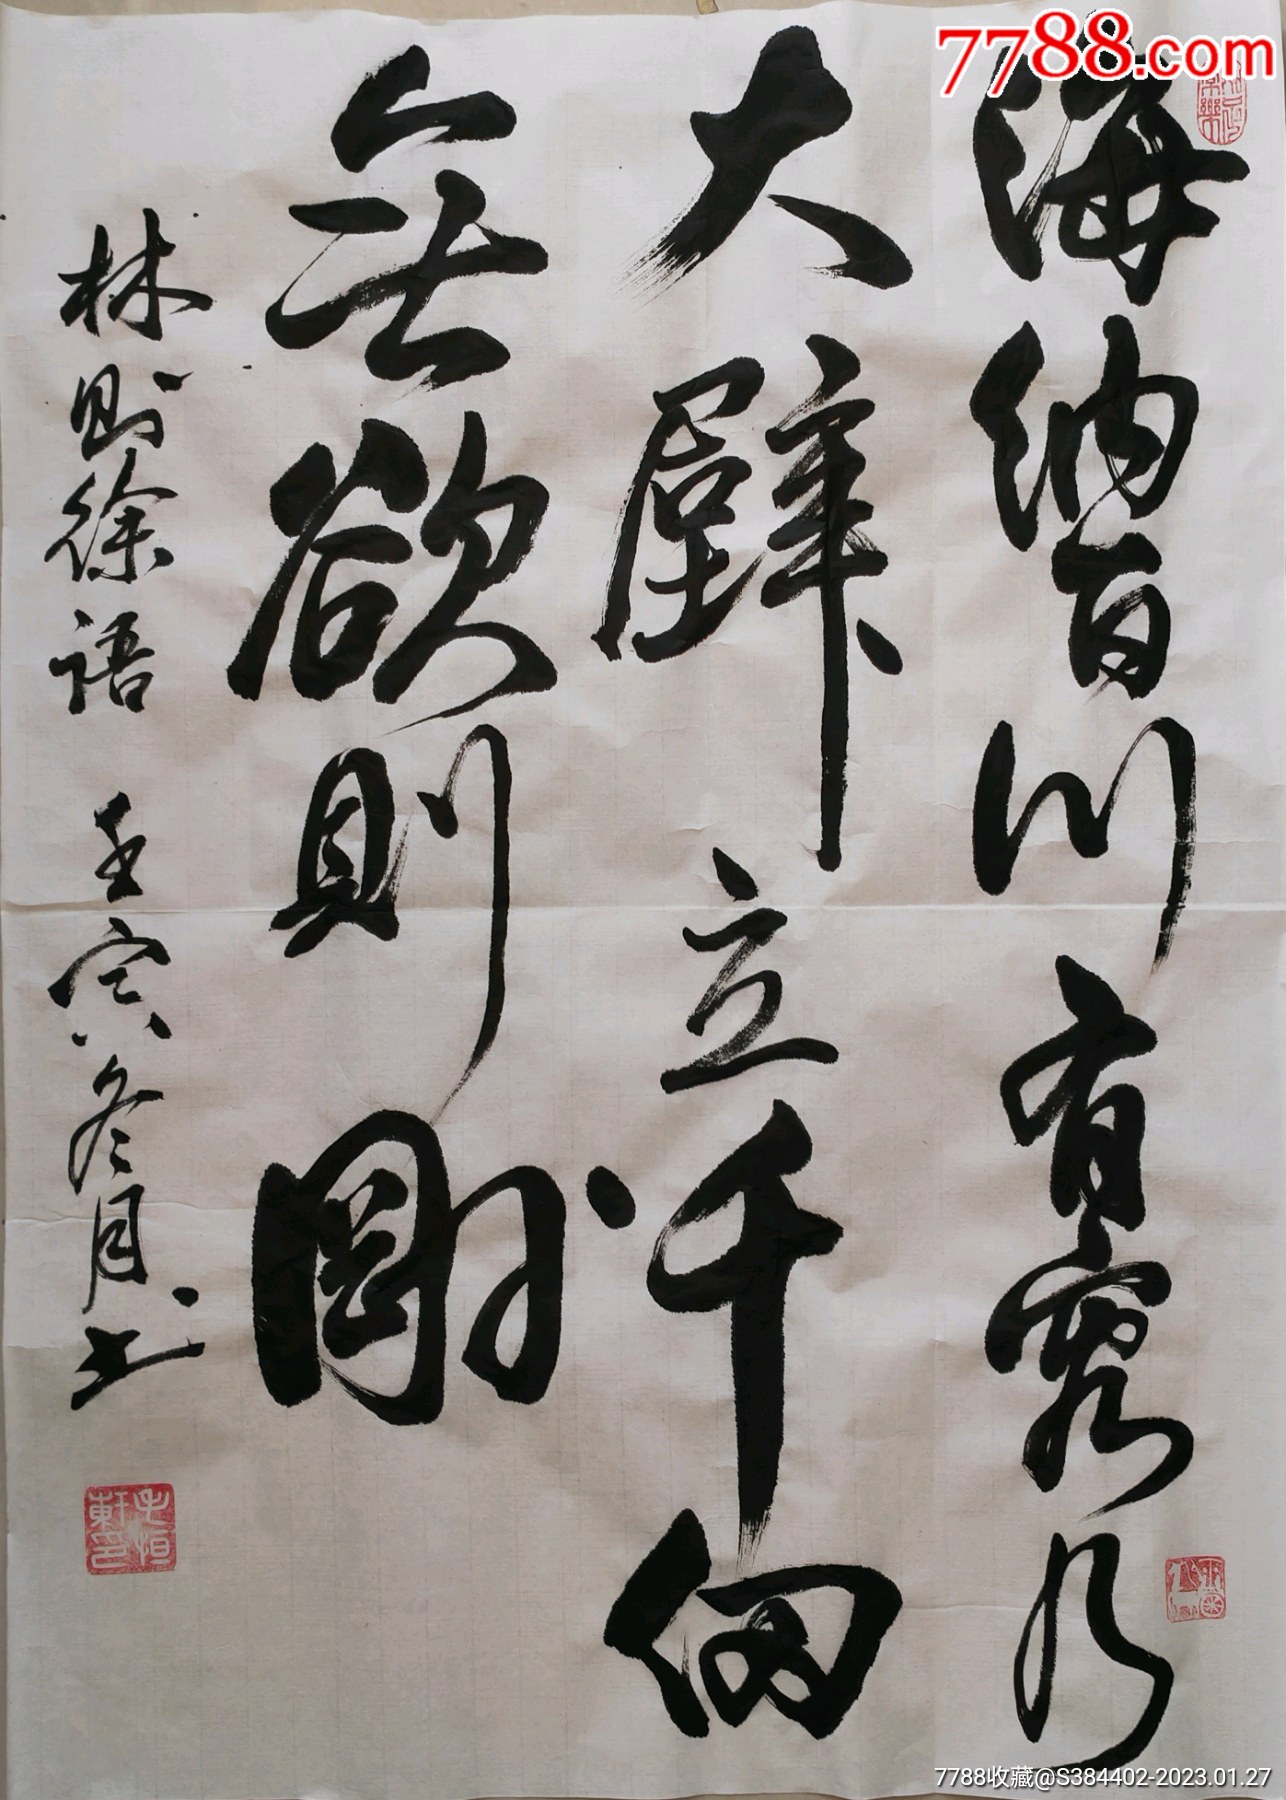 7788.com
海納百川有容乃
大壁立千仞
無欲則剛
林則徐語 壬寅冬月书
7788收藏@S384402-2023.01.27